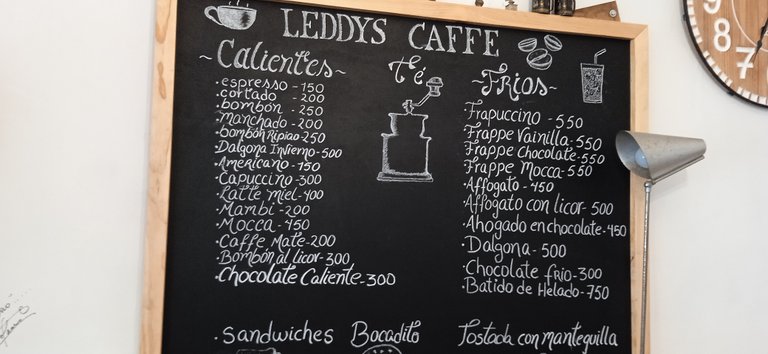 LEDDYS CAFFE
~Calientes~
·espresso - 150
cortado - 200
·bombón - 250
·Manchado - 200
·bombón Ripiao - 250
·Dalgona Invierno - 500
·Americano - 150
·Capuccino - 300
·Latte miel - 400
·Mambí - 200
·Mocca - 450
·Caffe Mate - 200
·Bombón al licor - 300
·Chocolate Caliente - 300
té
~FRíos~
Frapuccino - 550
Frappe Vainilla - 550
Frappe Chocolate - 550
Frappe Mocca - 550
·Affogato - 450
·Affogato con licor - 500
·Ahogado en chocolate - 450
·Dalgona - 500
·Chocolate frío - 300
·Batido de Helado - 750
·Sandwiches Bocadito Tostada con mantequilla
2
3
4